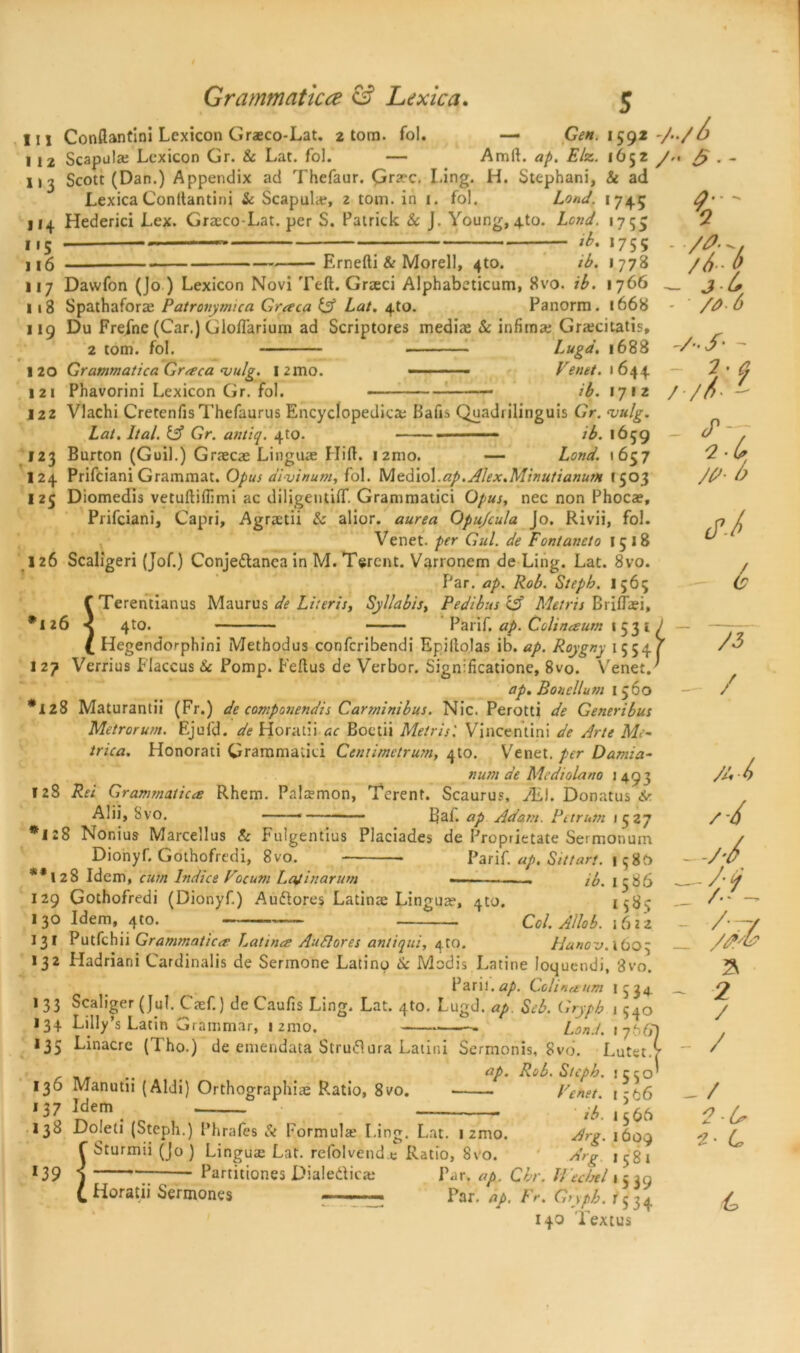 Grammaticæ & Lexica. 5
111 Conſtantini Lexicon Græco-Lat. 2 tom. fol. — Gen. 1592 -/../6
112 Scapulæ Lexicon Gr. & Lat. fol. — Amſt. ap. Elz. 1652 /.. 5 . -
113 Scott (Dan.) Appendix ad Theſaur. Græc. Ling. H. Stephani, & ad
Lexica Conſtantini & Scapulæ, 2 tom. in 1. fol. Lond. 1745
114 Hederici Lex. Græco-Lat. per S. Patrick & J. Young, 4to. Lond. 1755
115 ——— ib. 1755
116 ——— Erneſti & Morell, 4to. ib. 1778
117 Dawſon (Jo.) Lexicon Novi Teſt. Græci Alphabeticum, 8vo. ib. 1766
118 Spathaforæ Patronymica Græca & Lat. 4to. Panorm. 1668
119 Du Freſne (Car.) Gloſſarium ad Scriptores mediæ & infimæ Græcitatis,
2 tom. fol. ——— ——— Lugd. 1688
120 Grammatica Græca vulg. 12mo. ——— Venet. 1644
121 Phavorini Lexicon Gr. fol. ——— ib. 1712
122 Vlachi Cretenſis Theſaurus Encyclopedicæ Baſis Quadrilinguis Gr. vulg.
Lat. Ital. & Gr. antiq. 4to. ——— ib. 1659
123 Burton (Guil.) Græcæ Linguæ Hiſt. 12mo. — Lond. 1657
124 Priſciani Grammat. Opus divinum, fol. Mediol. ap. Alex. Minutianum 1503
125 Diomedis vetuſtiſſimi ac diligentiſſ. Grammatici Opus, nec non Phocæ,
Priſciani, Capri, Agrætii & alior. aurea Opuſcula Jo. Rivii, fol.
Venet. per Gul. de Fontaneto 1518
126 Scaligeri (Joſ.) Conjectanea in M. Terent. Varronem de Ling. Lat. 8vo.
Par. ap. Rob. Steph. 1565
Terentianus Maurus de Literis, Syllabis, Pedibus & Metris Briſſæi,
*126 4to. ——— —— Pariſ. ap. Colinæum 1531
Hegendorphini Methodus conſcribendi Epiſtolas ib. ap. Roygny 1554
127 Verrius Flaccus & Pomp. Feſtus de Verbor. Significatione, 8vo. Venet.
ap. Bonellum 1560
*128 Maturantii (Fr.) de componendis Carminibus. Nic. Perotti de Generibus
Metrorum. Ejuſd. de Horatii ac Boetii Metris. Vincentini de Arte Me-
trica. Honorati Grammatici Centimetrum, 4to. Venet. per Damia-
num de Mediolano 1493
128 Rei Grammaticæ Rhem. Palæmon, Terent. Scaurus, Æl. Donatus &
Alii, 8vo. ——— Baſ. ap Adam. Petrum 1527
*128 Nonius Marcellus & Fulgentius Placiades de Proprietate Sermonum
Dionyſ. Gothofredi, 8vo. ——— Pariſ. ap. Sittart. 1586
**128 Idem, cum Indice Vocum Latinarum ——— ib. 1586
129 Gothofredi (Dionyſ.) Auctores Latinæ Linguæ, 4to. 1585
130 Idem, 4to. ——— ——— Col. Allob. 1622
131 Putſchii Grammaticæ Latinæ Auctores antiqui, 4to. Hanov. 1605
132 Hadriani Cardinalis de Sermone Latino & Modis Latine loquendi, 8vo.
Pariſ. ap. Colinæum 1534
133 Scaliger (Jul. Cæſ.) de Cauſis Ling. Lat. 4to. Lugd. ap. Seb. Gryph 1540
134 Lilly's Latin Grammar, 12mo. ——— Lond. 1766
135 Linacre (Tho.) de emendata Structura Latini Sermonis, 8vo. Lutet.
ap. Rob. Steph. 1550
136 Manutii (Aldi) Orthographiæ Ratio, 8vo. —— Venet. 1566
137 Idem —— ——— ib. 1566
138 Doleti (Steph.) Phraſes & Formulæ Ling. Lat. 12mo. Arg. 1609
Sturmii (Jo) Linguæ Lat. reſolvendæ Ratio, 8vo. Arg 1581
139 ——— Partitiones Dialecticæ Par. ap. Chr. Wechel 1539
Horatii Sermones ——— Par. ap. Fr. Gryph. 1534
140 Textus